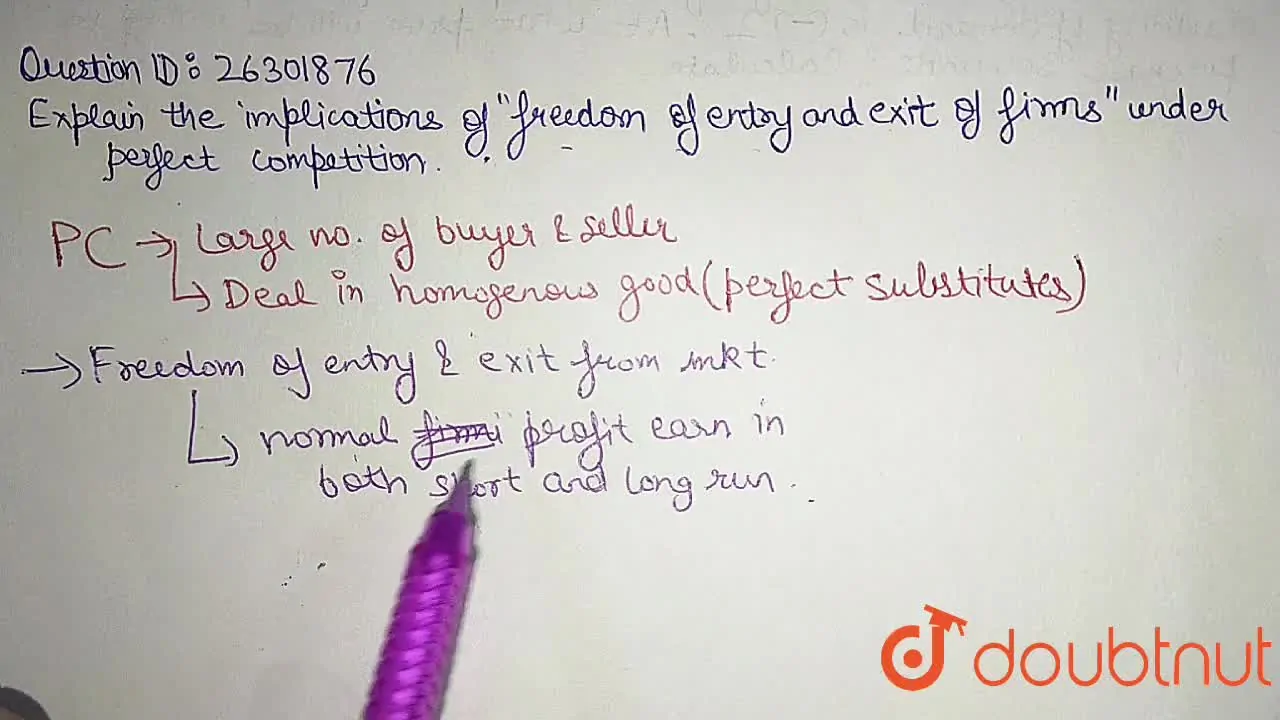 Question ID: 26301876
Explain the implications of "freedom of entry and exit of firms" under
perfect competition.
PC → Large no. of buyer & seller
↳ Deal in homogenous good (perfect substitutes)
→ Freedom of entry & exit from mkt.
↳ normal profit earn in
both short and long run.
doubtnut